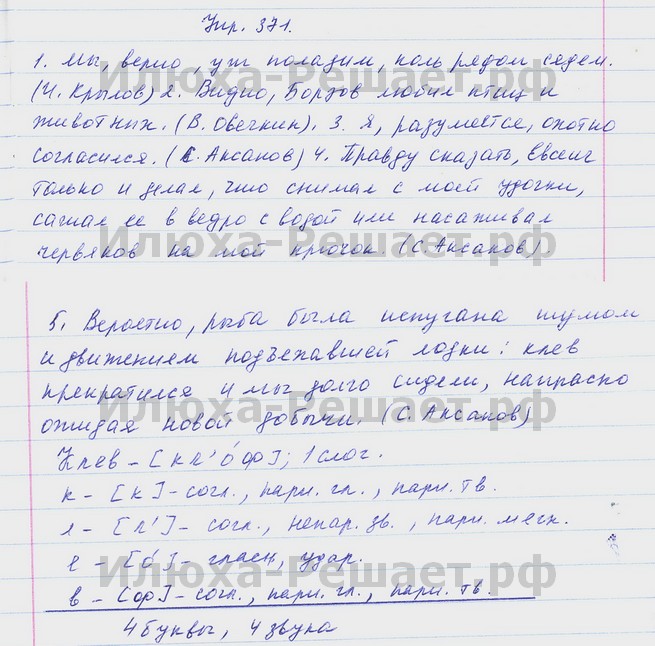 Упр. 371.
1. Мы, верно, уж поладим, коль рядом сядем.
(И. Крылов) 2. Видно, Борзов любил птиц и
животных. (В. Овечкин). 3. Я, разумеется, охотно
согласился. (С. Аксаков) 4. Правду сказать, Евсеич
только и делал, что снимал с моей удочки,
сажал ее в ведро с водой или насаживал
червяков на мой крючок. (С. Аксаков).
5. Вероятно, рыба была испугана шумом
и движением подъехавшей лодки: клев
прекратился и мы долго сидели, напрасно
ожидая новой добычи. (С. Аксаков)
Клев – [кл'оф]; 1 слог.
к – [к] – согл., парн. гл., парн. тв.
л – [л'] – согл., непар. зв., парн. мягк.
е – [о́] – гласн, удар.
в – [ф] – согл., парн. гл., парн. тв.
4 буквы, 4 звука
Илюха-Решает.рф
Илюха-Решает.рф
Илюха-Решает.рф
Илюха-Решает.рф